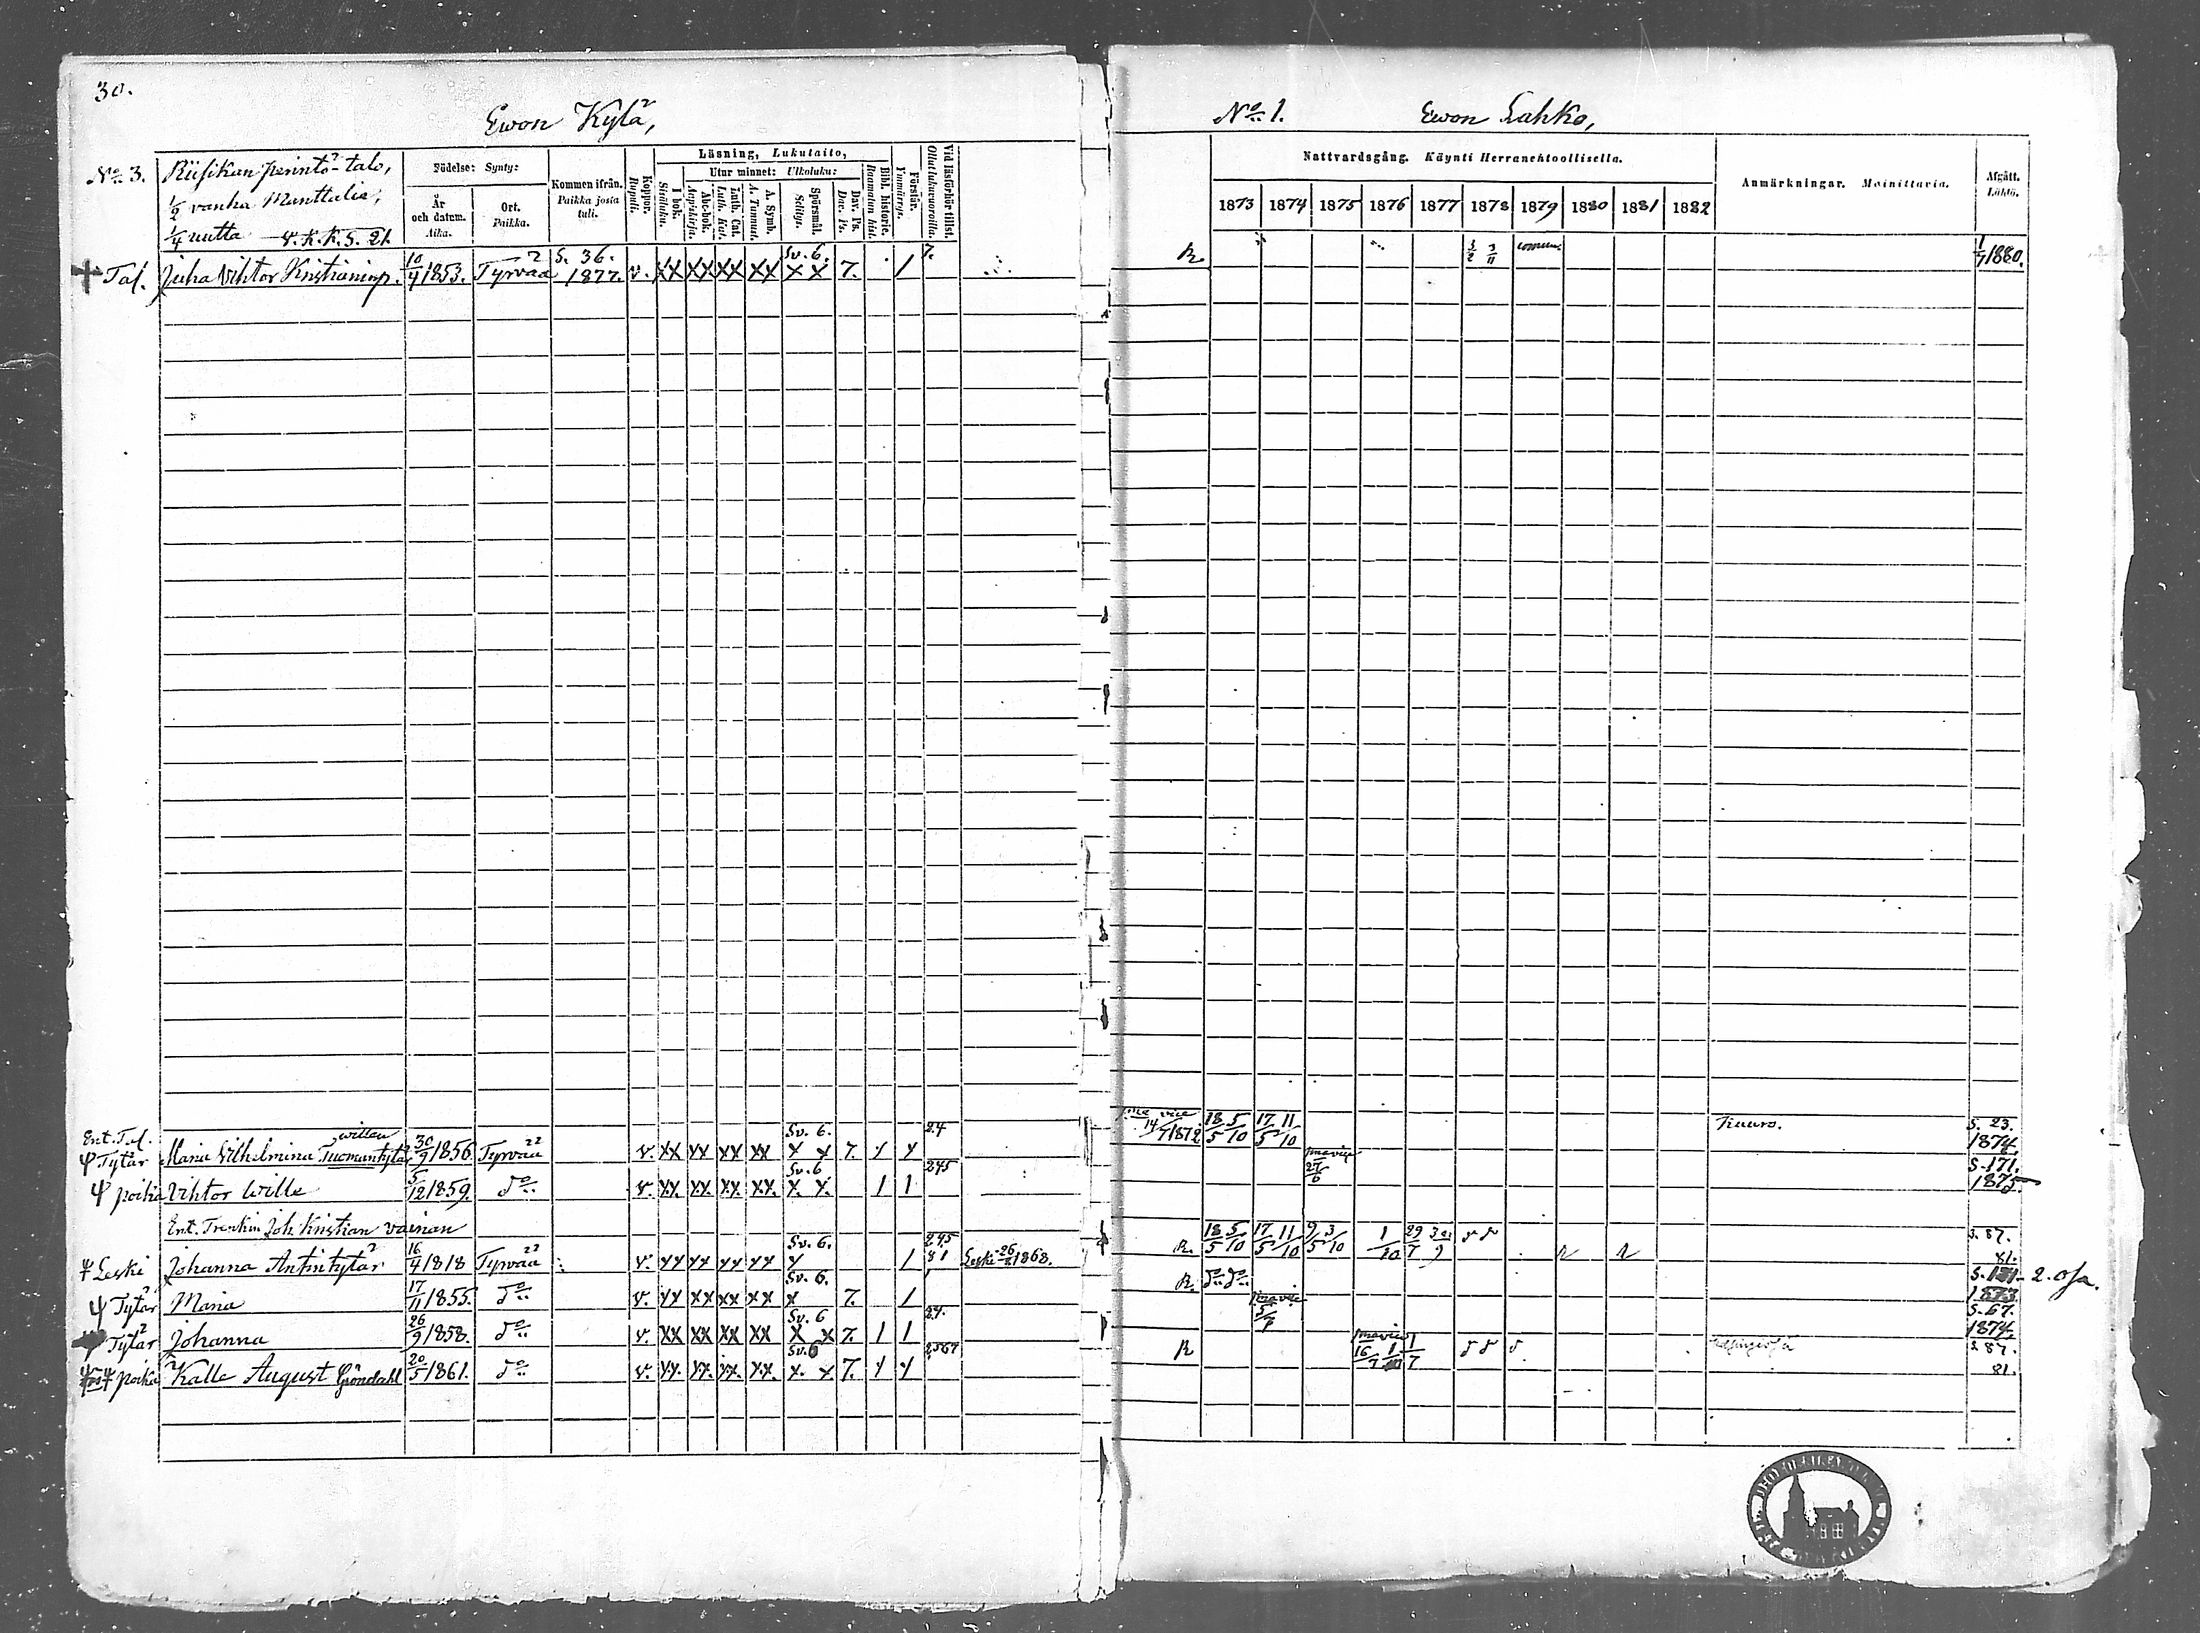 30.
Ewon Kylä,
No 1.
Ewon Lahko,
No 3.
Riisikan perintö-talo,
1/2 vanha Manttalia,
1/4 uutta V.K.K.S. 21.
Födelse: Synty:
År och datum. Aika.
Ort. Paikka.
Kommen ifrån. Paikka josta tuli.
Koppor. Rupuli.
Läsning, Lukutaito,
I bok. Sisäluku.
Utur minnet: Ulkoluku:
Abc-bok. Aapiskirja.
Luth. Cat. Luth. Kat.
A. Symb. A. Tunnust.
Spörsmål. Selitys.
Dav. Ps. Dav. Ps.
Bibl. historie. Raamatun hist.
Förstår. Ymmärrys.
Vid läsförhör tillst. Ollut lukuvuoroilla.
Nattvardsgång. Käynti Herranehtoollisella.
1873 1874 1875 1876 1877 1878 1879 1880 1881 1882
Anmärkningar. Muinittavia.
Afgått. Lähtö.
Tal. Juha Vihtor Kristianinp. 10/4 1853. Tyrvää S. 36. 1877. v. XX XX XX XX Sv. 6. X X 7. / 7.
R. 3/2 3/11 1/7 1880.
Ent. Tal. Willen
Tytär Maria Vilhelmina Tuomantytär 30/9 1856 Tyrvää v. XX XX XX XX Sv. 6. X X 7. 24
14/7 1872 18/5 5/10 17/5 11/10 Kuuro. S. 23. 1874
poika Vihtor Wille 5/12 1859. do v. XX. XX. XX. XX. Sv. 6 X. X. 1 1 245
27/6 S. 171. 1875
Ent. Trenkin Joh. Kristian vainan
Leski Johanna Antintytär 16/4 1818 Tyrvää v. Sv. 6. / 245 81 Leski 1868.
R. 18/5 5/10 17/5 11/10 9/5 3/10 1/10 29/7 30/9 S. 87. 81.
Tytär Maria 17/11 1855. do v. XX XX XX XX Sv. 6. X 7. /
R. do do 2. osa. 1873
Tytär Johanna 26/9 1858. do v. XX XX XX XX Sv. 6 X X 7. 1 1 24.
S. 67. 1874.
poika Kalle August Gröndahl 20/5 1861. do v. XX. XX. XX. XX. Sv. 6 X. X 7. 2567
R 16/7 1/7 S. 87. 81.